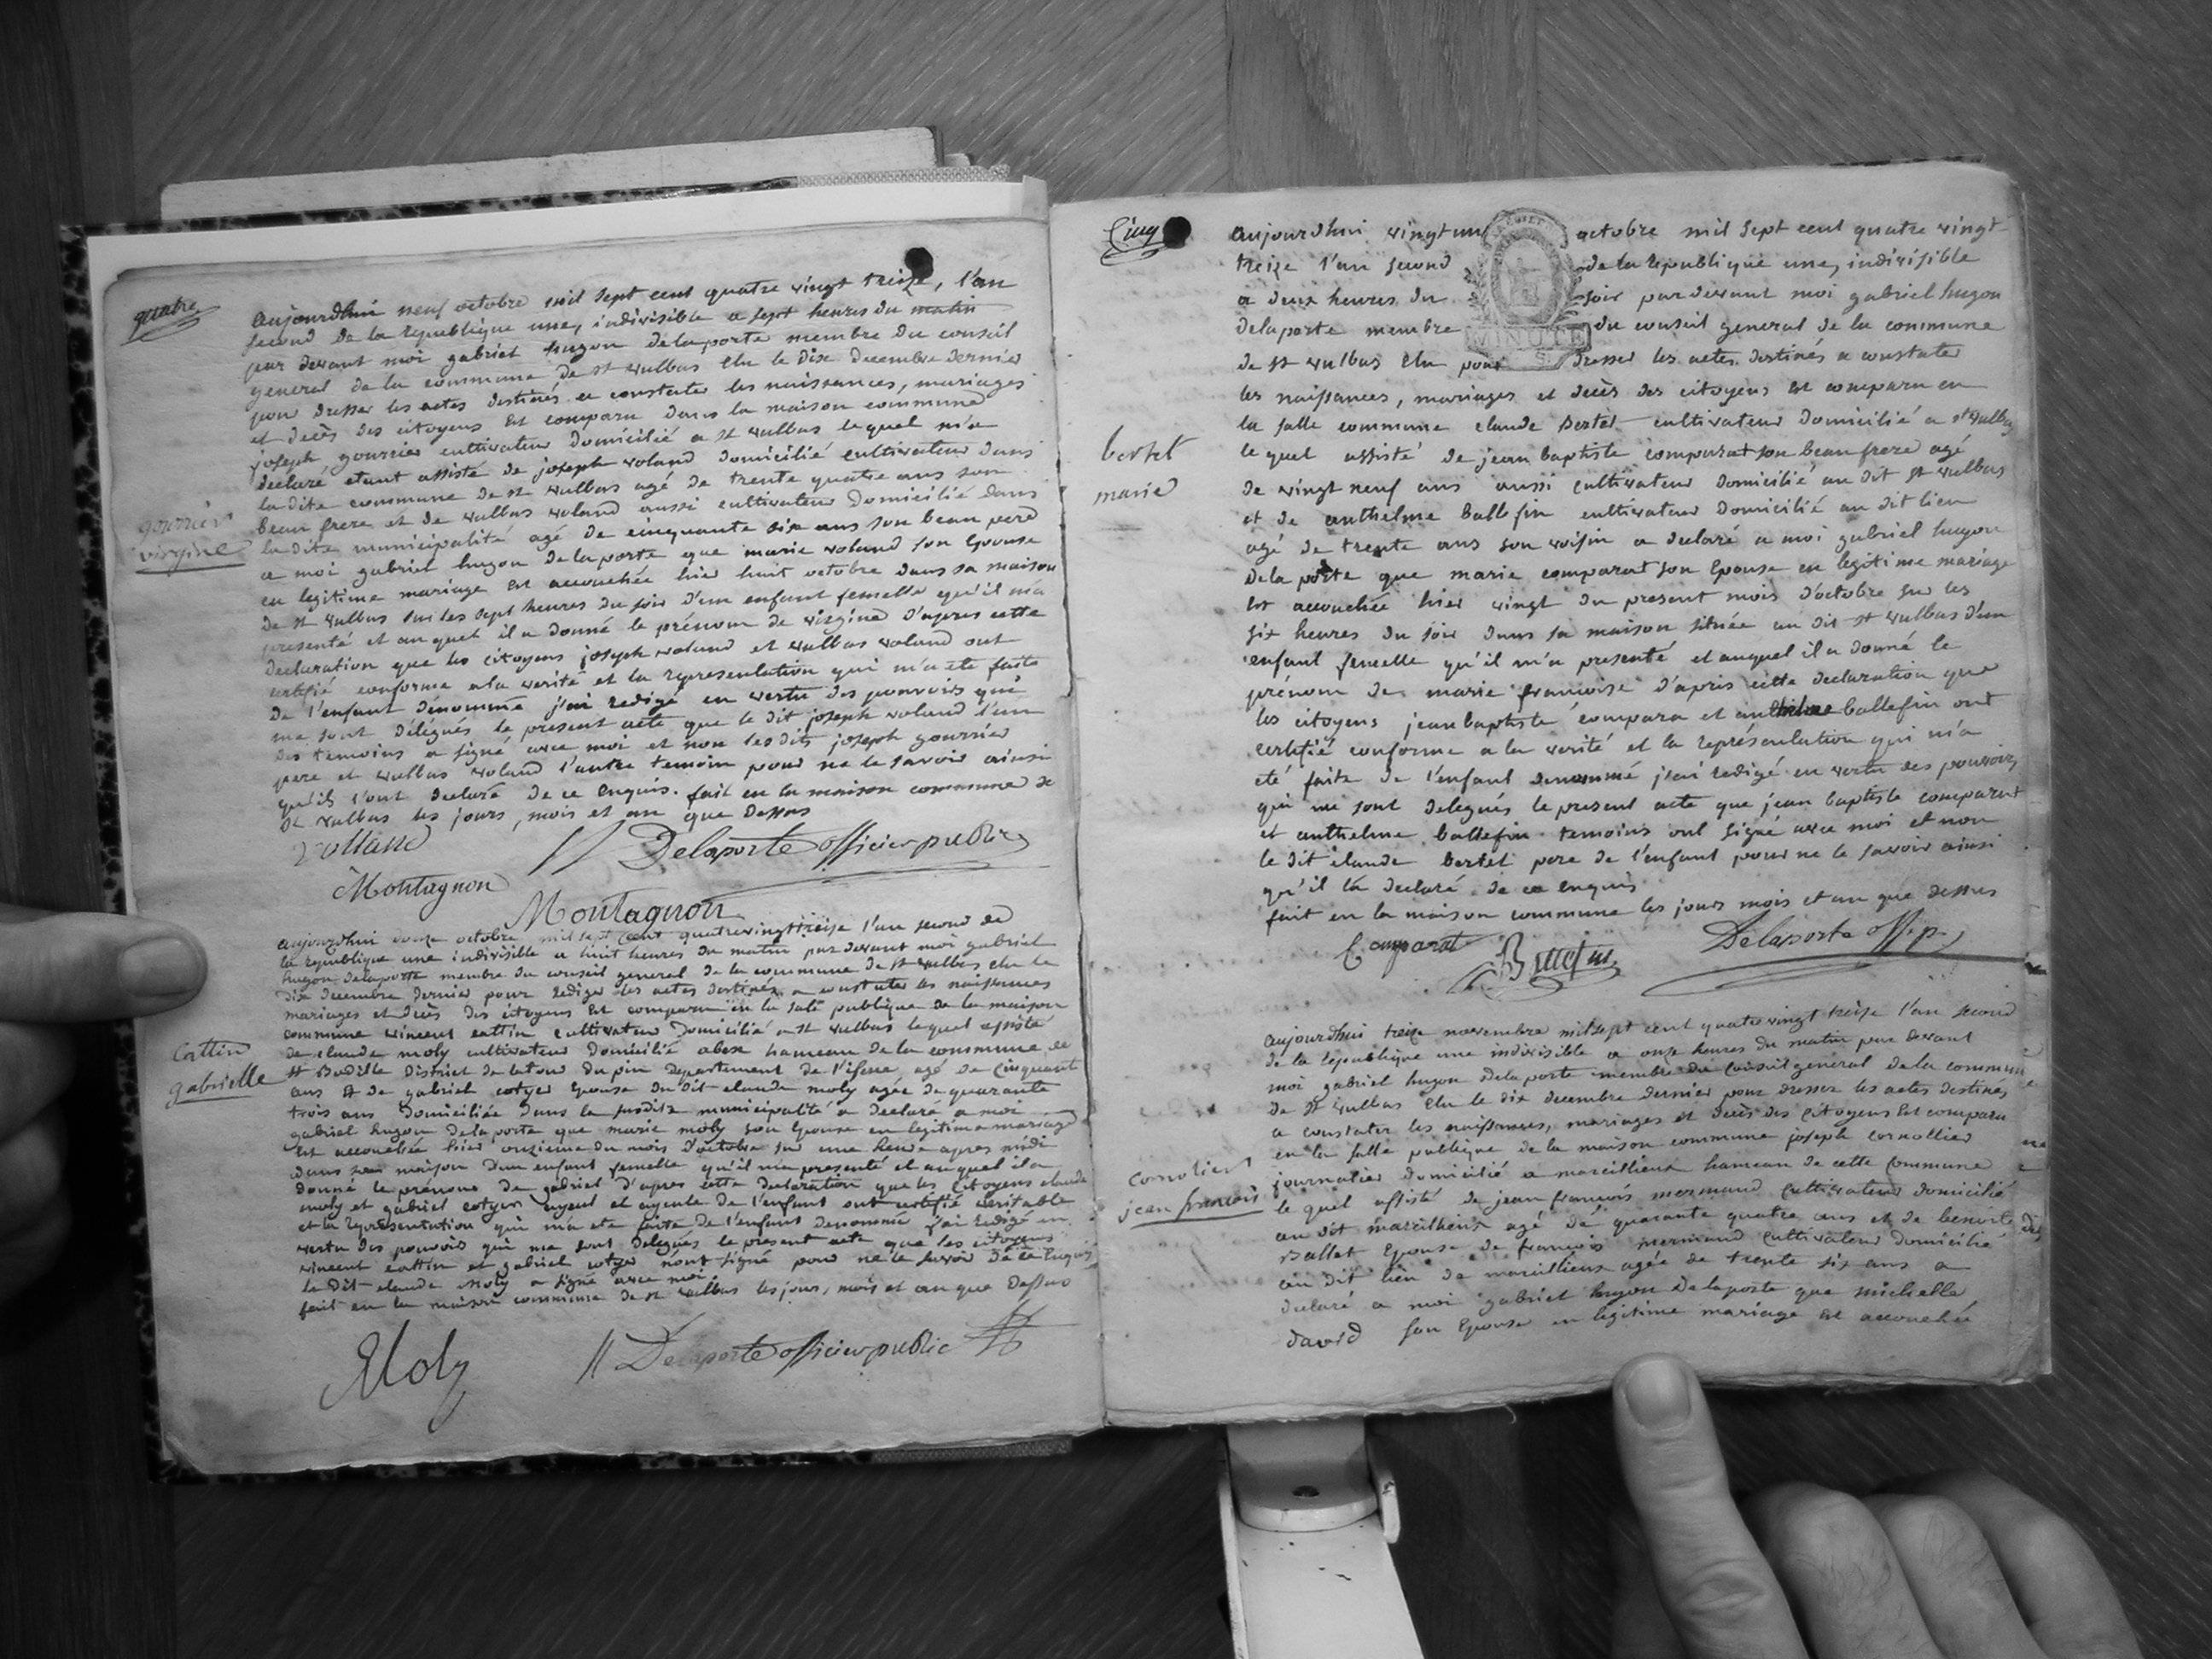 quatre
aujourdhui neuf octobre mil sept cent quatre vingt treize, l'an
second de la republique une, indivisible a sept heures du matin
par devant moi gabriel hugon delaporte membre du conseil
general de la commune de st vulbas elu le dix decembre dernier
pour dresser les actes destinés a constater les naissances, mariages
et decès des citoyens est comparu dans la maison commune
joseph gourrier cultivateur domicilié a st vulbas lequel m'a
declaré etant assisté de joseph voland domicilié cultivateur dans
la dite commune de st vulbas agé de trente quatre ans son
beau frere et de vulbas voland aussi cultivateur domicilié dans
gourrier
virgine
la dite municipalité agé de cinquante six ans son beau pere
a moi gabriel hugon delaporte que marie voland son epouse
en legitime mariage est accouchée hier huit octobre dans sa maison
de st vulbas sur les sept heures du soir d'un enfant femelle qu'il m'a
presenté et auquel il a donné le prénom de virgine d'apres cette
declaration que les citoyens joseph voland et vulbas voland ont
certifié conforme a la verité et la representation qui m'a ete faite
de l'enfant dénommé j'ai redigé en vertu des pouvoirs qui
me sont délégués le present acte que le dit joseph voland l'un
des temoins a signé avec moi et non les dits joseph gourrier
pere et vulbas voland l'autre temoin pour ne le savoir ainsi
qu'ils l'ont declaré de ce enquis. fait en la maison commune de
st vulbas les jours, mois et an que dessus
Volland
Delaporte officier public
Montagnon
Montagnon
aujourdhui douze octobre mil sept cent quatrevingttreize l'an second de
la republique une indivisible a huit heures du matin par devant moi gabriel
hugon delaporte membre du conseil general de la commune de st vulbas elu le
dix decembre dernier pour rediger les actes destinés a constater les naissances
mariages et decès des citoyens est comparu en la sale publique de la maison
commune vincent cattin cultivateur domicilié a st vulbas lequel assisté
cattin
gabrielle
de claude moly cultivateur domicilié hameau de la commune de
st Budille district de latour du pin departement de l'isere, agé de cinquante
ans et de gabriel cotyer epouse du dit claude moly agée de quarante
trois ans domiciliée dans la susdite municipalité a declaré a moi
gabriel hugon delaporte que marie moly son epouse en legitime mariage
est accouchée hier onzieme du mois d'octobre sur une heure apres midi
dans sa maison d'un enfant femelle qu'il m'a presenté et auquel il a
donné le prénom de gabriel d'apres cette declaration que les citoyens claude
moly et gabriel cotyer ayeul et ayeule de l'enfant ont certifié veritable
et la representation qui m'a ete faite de l'enfant denommé j'ai redigé en
vertu des pouvoirs qui me sont delegués le present acte que les citoyens
vincent cattin et gabriel cotyer n'ont signé pour ne le savoir de ce enquis
le dit claude moly a signé avec moi.
fait en la maison commune de st vulbas les jours, mois et an que dessus
Moly
Delaporte officier public
Cinq
aujourdhui vingt un octobre mil sept cent quatre vingt
treize l'an second de la republique une, indivisible
a deux heures du soir par devant moi gabriel hugon
delaporte membre du conseil general de la commune
MINUTE
de st vulbas elu pour dresser les actes destinés a constater
les naissances, mariages et decès des citoyens est comparu en
la salle commune claude bertet cultivateur domicilié a st vulbas
bertet
marie
le quel assisté de jean baptiste comparat son beau frere agé
de vingt neuf ans aussi cultivateur domicilié au dit st vulbas
et de anthelme ballefin cultivateur domicilié au dit lieu
agé de trente ans son voisin a declaré a moi gabriel hugon
de la porte que marie comparat son epouse en legitime mariage
est accouchée hier vingt du present mois d'octobre sur les
six heures du soir dans sa maison située au dit st vulbas d'un
enfant femelle qu'il m'a presenté et auquel il a donné le
prénom de marie francoise d'apris cette declaration que
les citoyens jean baptiste compara et anthelme ballefin ont
certifié conforme a la verité et la représentation qui m'a
eté faite de l'enfant denommé j'ai redigé en vertu des pouvoirs
qui me sont delegués le present acte que jean baptiste comparat
et anthelme ballefin temoins ont signé avec moi et non
le dit claude bertet pere de l'enfant pour ne le savoir ainsi
qu'il l'a declaré de ce enquis
fait en la maison commune les jours mois et an que dessus
Comparat
Delaporte off. p.
aujourdhui treize novembre mil sept cent quatre vingt treize l'an second
de la republique une indivisible a onze heures du matin par devant
moi gabriel hugon delaporte membre du conseil general de la commune
de st vulbas elu le dix decembre dernier pour dresser les actes destinés
a constater les naissances, mariages et decès des citoyens est comparu
en la salle publique de la maison commune joseph cornollier
cornolier
jean francois
journalier domicilié a marcillieux hameau de cette commune
le quel assisté de jean francois mermand cultivateur domicilié
au dit marcillieux agé de quarante quatre ans et de benoite
Ballet epouse de francois mermand cultivateur domicilié
au dit lieu de marcillieux agée de trente six ans a
declaré a moi gabriel hugon delaporte que michelle
david son epouse en legitime mariage est accouchée